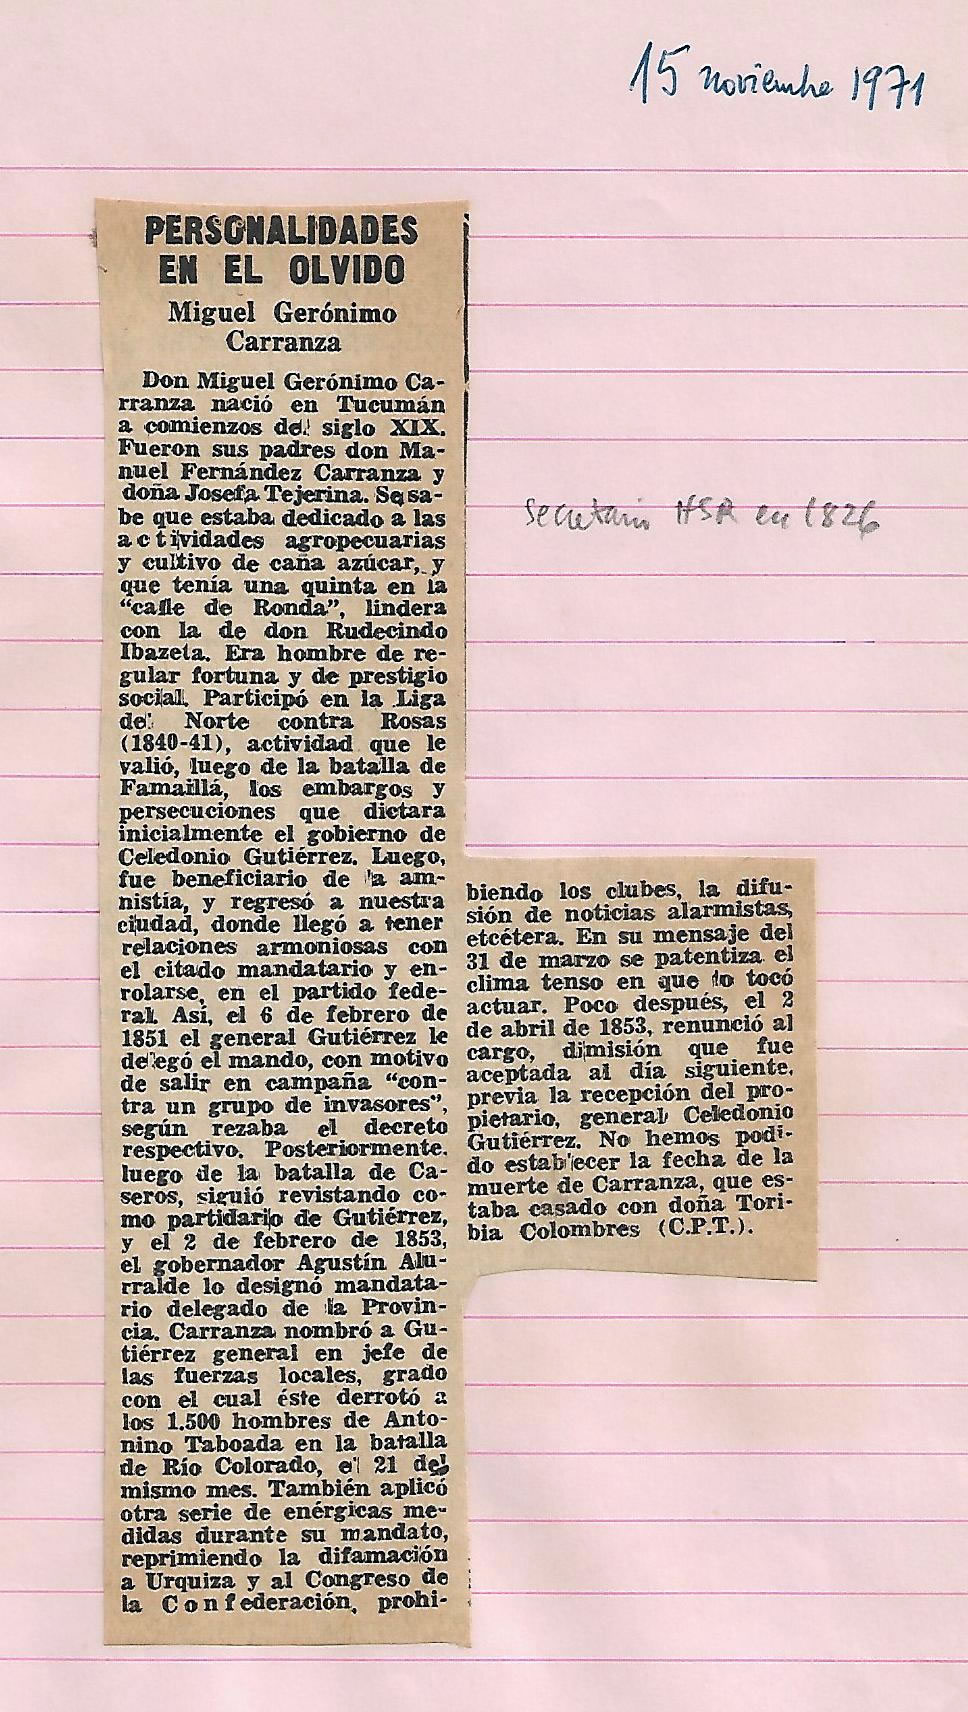 15 noviembre 1971
PERSONALIDADES
EN EL OLVIDO
Miguel Gerónimo
Carranza
Don Miguel Gerónimo Ca-
rranza nació en Tucumán
a comienzos del siglo XIX.
Fueron sus padres don Ma-
nuel Fernández Carranza y
doña Josefa Tejerina. Se sa-
be que estaba dedicado a las
actividades agropecuarias
y cultivo de caña azúcar, y
que tenía una quinta en la
“calle de Ronda”, lindera
con la de don Rudecindo
Ibazeta. Era hombre de re-
gular fortuna y de prestigio
social. Participó en la Liga
del Norte contra Rosas
(1840-41), actividad que le
valió, luego de la batalla de
Famaillá, los embargos y
persecuciones que dictara
inicialmente el gobierno de
Celedonio Gutiérrez. Luego,
fue beneficiario de la am-
nistía, y regresó a nuestra
ciudad, donde llegó a tener
relaciones armoniosas con
el citado mandatario y en-
rolarse, en el partido fede-
ral. Así, el 6 de febrero de
1851 el general Gutiérrez le
delegó el mando, con motivo
de salir en campaña “con-
tra un grupo de invasores”,
según rezaba el decreto
respectivo. Posteriormente.
luego de la batalla de Ca-
seros, siguió revistando co-
mo partidario de Gutiérrez,
y el 2 de febrero de 1853,
el gobernador Agustín Alu-
rralde lo designó mandata-
rio delegado de la Provin-
cia. Carranza nombró a Gu-
tiérrez general en jefe de
las fuerzas locales, grado
con el cual éste derrotó a
los 1.500 hombres de Anto-
nino Taboada en la batalla
de Río Colorado, el 21 del
mismo mes. También aplicó
otra serie de enérgicas me-
didas durante su mandato,
reprimiendo la difamación
a Urquiza y al Congreso de
la Confederación, prohi-
secretario HSR en 1826
biendo los clubes, la difu-
sión de noticias alarmistas,
etcétera. En su mensaje del
31 de marzo se patentiza el
clima tenso en que lo tocó
actuar. Poco después, el 2
de abril de 1853, renunció al
cargo, dimisión que fue
aceptada al día siguiente.
previa la recepción del pro-
pietario, general Celedonio
Gutiérrez. No hemos podi-
do establecer la fecha de la
muerte de Carranza, que es-
taba casado con doña Tori-
bia Colombres (C.P.T.).